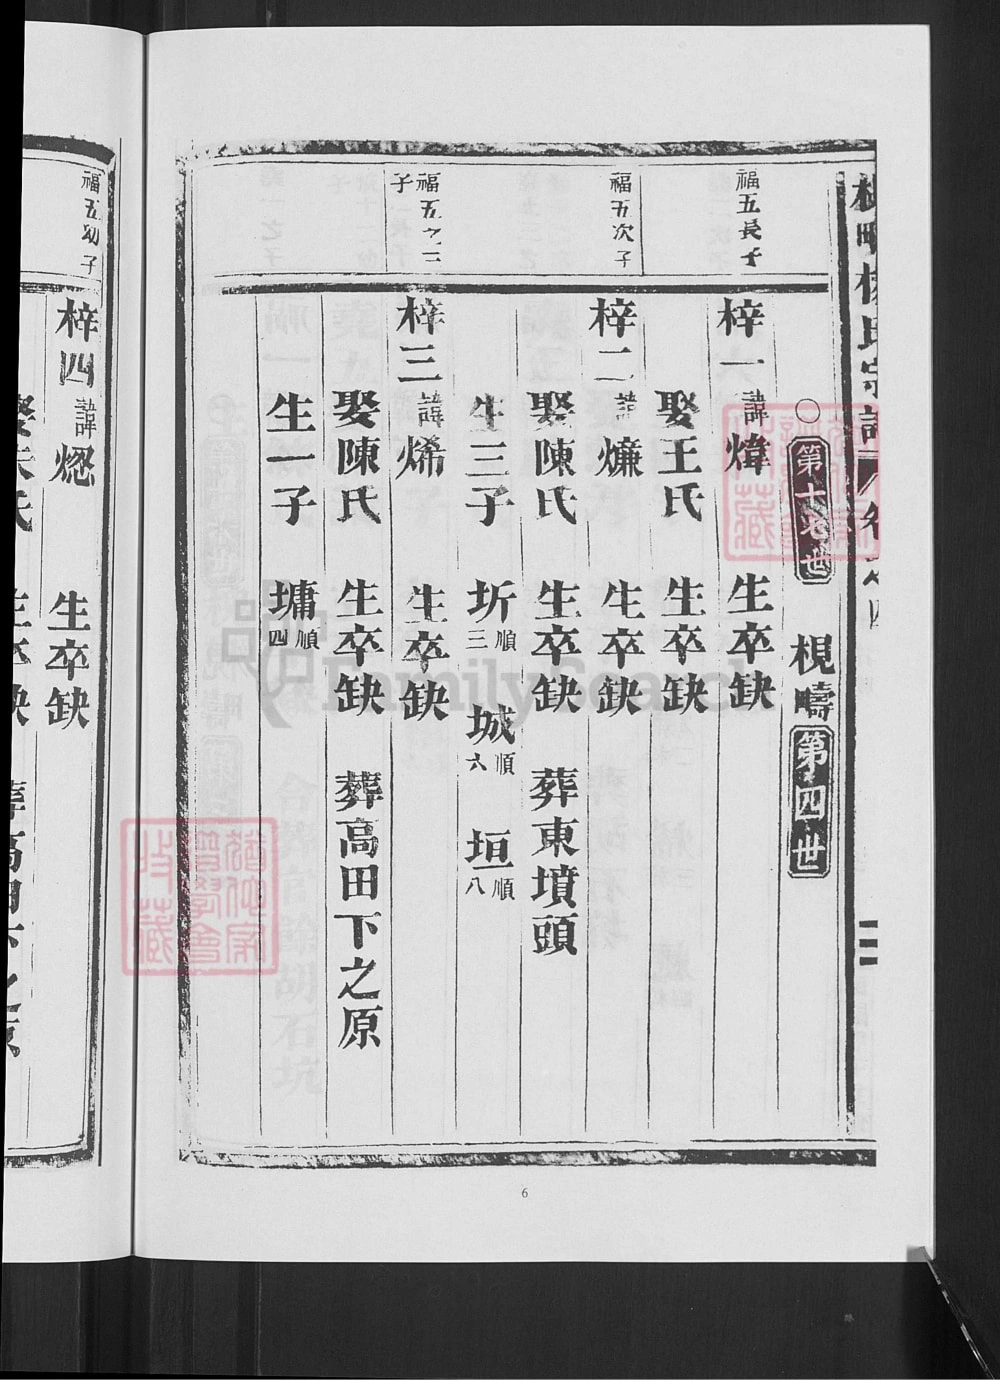 ○第十七世 梘疇第四世
福五長子
梓一諱煒 生卒缺
娶王氏 生卒缺
福五次子
梓二諱㷙 生卒缺
娶陳氏 生卒缺 葬東墳頭
生三子 圻順三 城順六 垣順八
福五之三子
梓三諱烯 生卒缺
娶陳氏 生卒缺 葬高田下之原
生一子 墉順四
福五幼子
梓四諱 生卒缺
6
FamilySearch